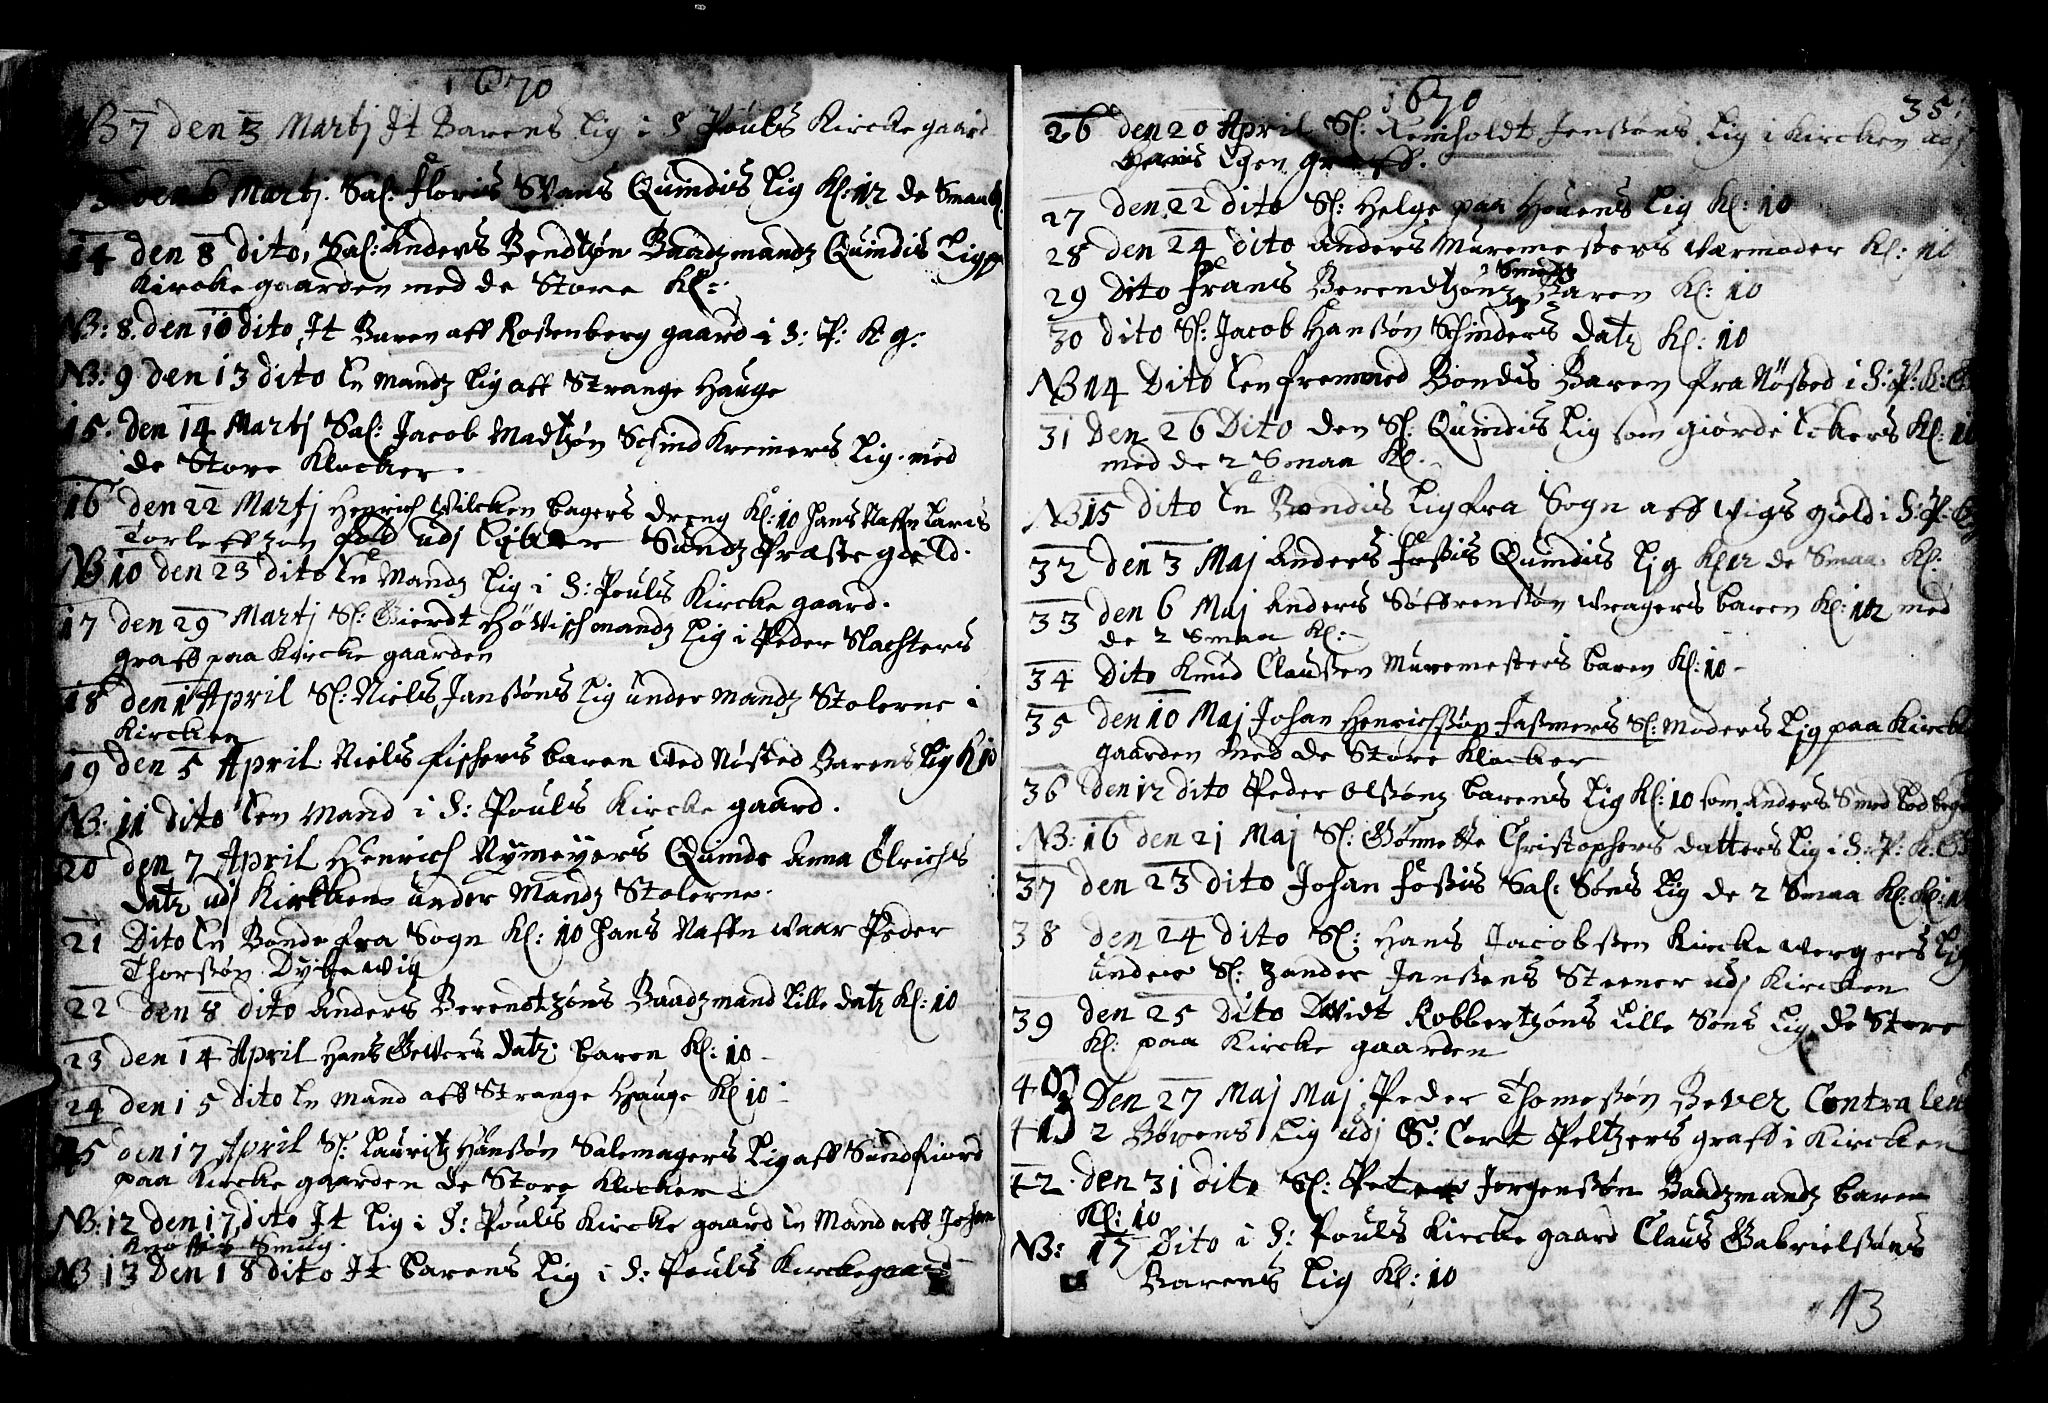 1670
NB 7 den 3 Martj It Barens Lig i S Pouls Kircke gaard
13 den 6 Martj. Sal: Floris Svans Quindis Lig Kl: 12 de Smaa Kl:
14 den 8 dito, Sal: Anders Bendtzøn Baadzmandz Quindis Lig paa
Kirckegaarden med de Store Kl:
NB: 8. den 10 dito, It Baren aff Rossenberg gaard i S: P: K g:
NB: 9 den 13 dito En mandz Lig aff Strange Hauge
15. den 14 Martj Sal: Jacob Madtzøn Schind Kremers Lig. med
de Store Klocker.
16 den 22 Martj Henrich Wilcken bagers dreng Kl: 10 Hans Naffn Laris
Torleffzøn fød udj Sundz Præste gield.
NB 10 den 23 dito En Mandz Lig i S: Pouls Kircke gaard.
17 den 29 Martj Sl: Gierdt Høwischmandz Lig i Peder Slachters
graff paa Kircke gaarden
18 den 1 April Sl: Niels Janssøns Lig under mandz Stolerne i
Kircken
19 den 5 April Niels fischers baren Ved Nøsted Barens Lig K 10
NB: 11 dito Een Mand i S: Pouls Kircke gaard.
20 den 7 April Henrich Nymeyers Quinde Anna Olrichs
datz udj Kircken under Mandz Stolerne.
21 Dito En Bonde fra Sogn Kl: 10 Hans Naffn waar Peder
Thorssøn Dybewig
22 den 8 dito Anders Berendtzøns Baadzmand Lille datz Kl: 10
23 den 14 April Hans datz baren Kl: 10
24 den 15 dito En mand aff Strange Hauge Kl 10
25 den 17 April Sl: Lauritz Hanssøn Salemagers Lig aff Sundfiord
paa Kircke gaarden de Store Klocker
NB: 12 den 17 dito It Lig i S: Pouls Kircke gaard En Mand aff Johan
Smug.
NB 13 Den 18 dito It barens Lig i S: Pouls Kirckegaard
1670
35.
26 den 20 April Sl: Reinholdt Jenssøns Lig i Kircken udj
Egen graff.
27 den 22 dito Sl: Helge paa Houens Lig Kl: 10
28 den 24 dito Anders Muremesters Værmoder Kl: 10
29 Dito Frans Berendtzøns Smidz Baren Kl: 10
30 dito Sl: Jacob Hanssøn Schinders datz Kl: 10
NB 14 Dito Een fremmed Bondis Baren fra Nøsted i S: P: K: G
31 Den 26 Dito den Sl: Quindis Lig som giorde Kl: 10
med de 2 Smaa Kl.
NB 15 dito En Bondis Lig fra Sogn aff Wigs gield i S: P: K
32 den 3 Maj Anders Quindis Lig Kl 12 de Smaa Kl:
33 den 6 Maj Anders Søffrenssøn Vragers baren Kl: 12 med
de 2 Smaa Kl:
34 Dito Knud Claussen Muremesters baren Kl: 10
35 den 10 Maj Johan Henrichssøn Fasmers Sl: Moders Lig paa Kircke
gaarden Med de Store Klocker
36 den 12 dito Peder Olssønz barens Lig Kl: 10 som Anders Smed lod
NB: 16 den 21 Maj Sl: Christophers datters Lig i S: P: K: G
37 den 23 dito Johan Sal: Søns Lig de 2 Smaa Kl: Kl: 10
38 den 24 dito Sl: Hans Jacobssen Kircke wergers Lig
under Sl: Zander Janssens Steener udj Kircken
39 den 25 dito Dvidt Robbertzøns Lille Søns Lig de Store
Kl: paa Kircke gaarden
40 Den 27 Maj Maj Peder Thomessøn Bever Contraleu
41 2 Børens Lig udj S: Cort Peltzers graff i Kircken
42. den 31 dito Sl: Peter Jorgenssøn Baadzmandz baren
Kl: 10
NB: 17 Dito i S: Pouls Kircke gaard Claus Gabrielssøns
Barens Lig Kl: 10
13